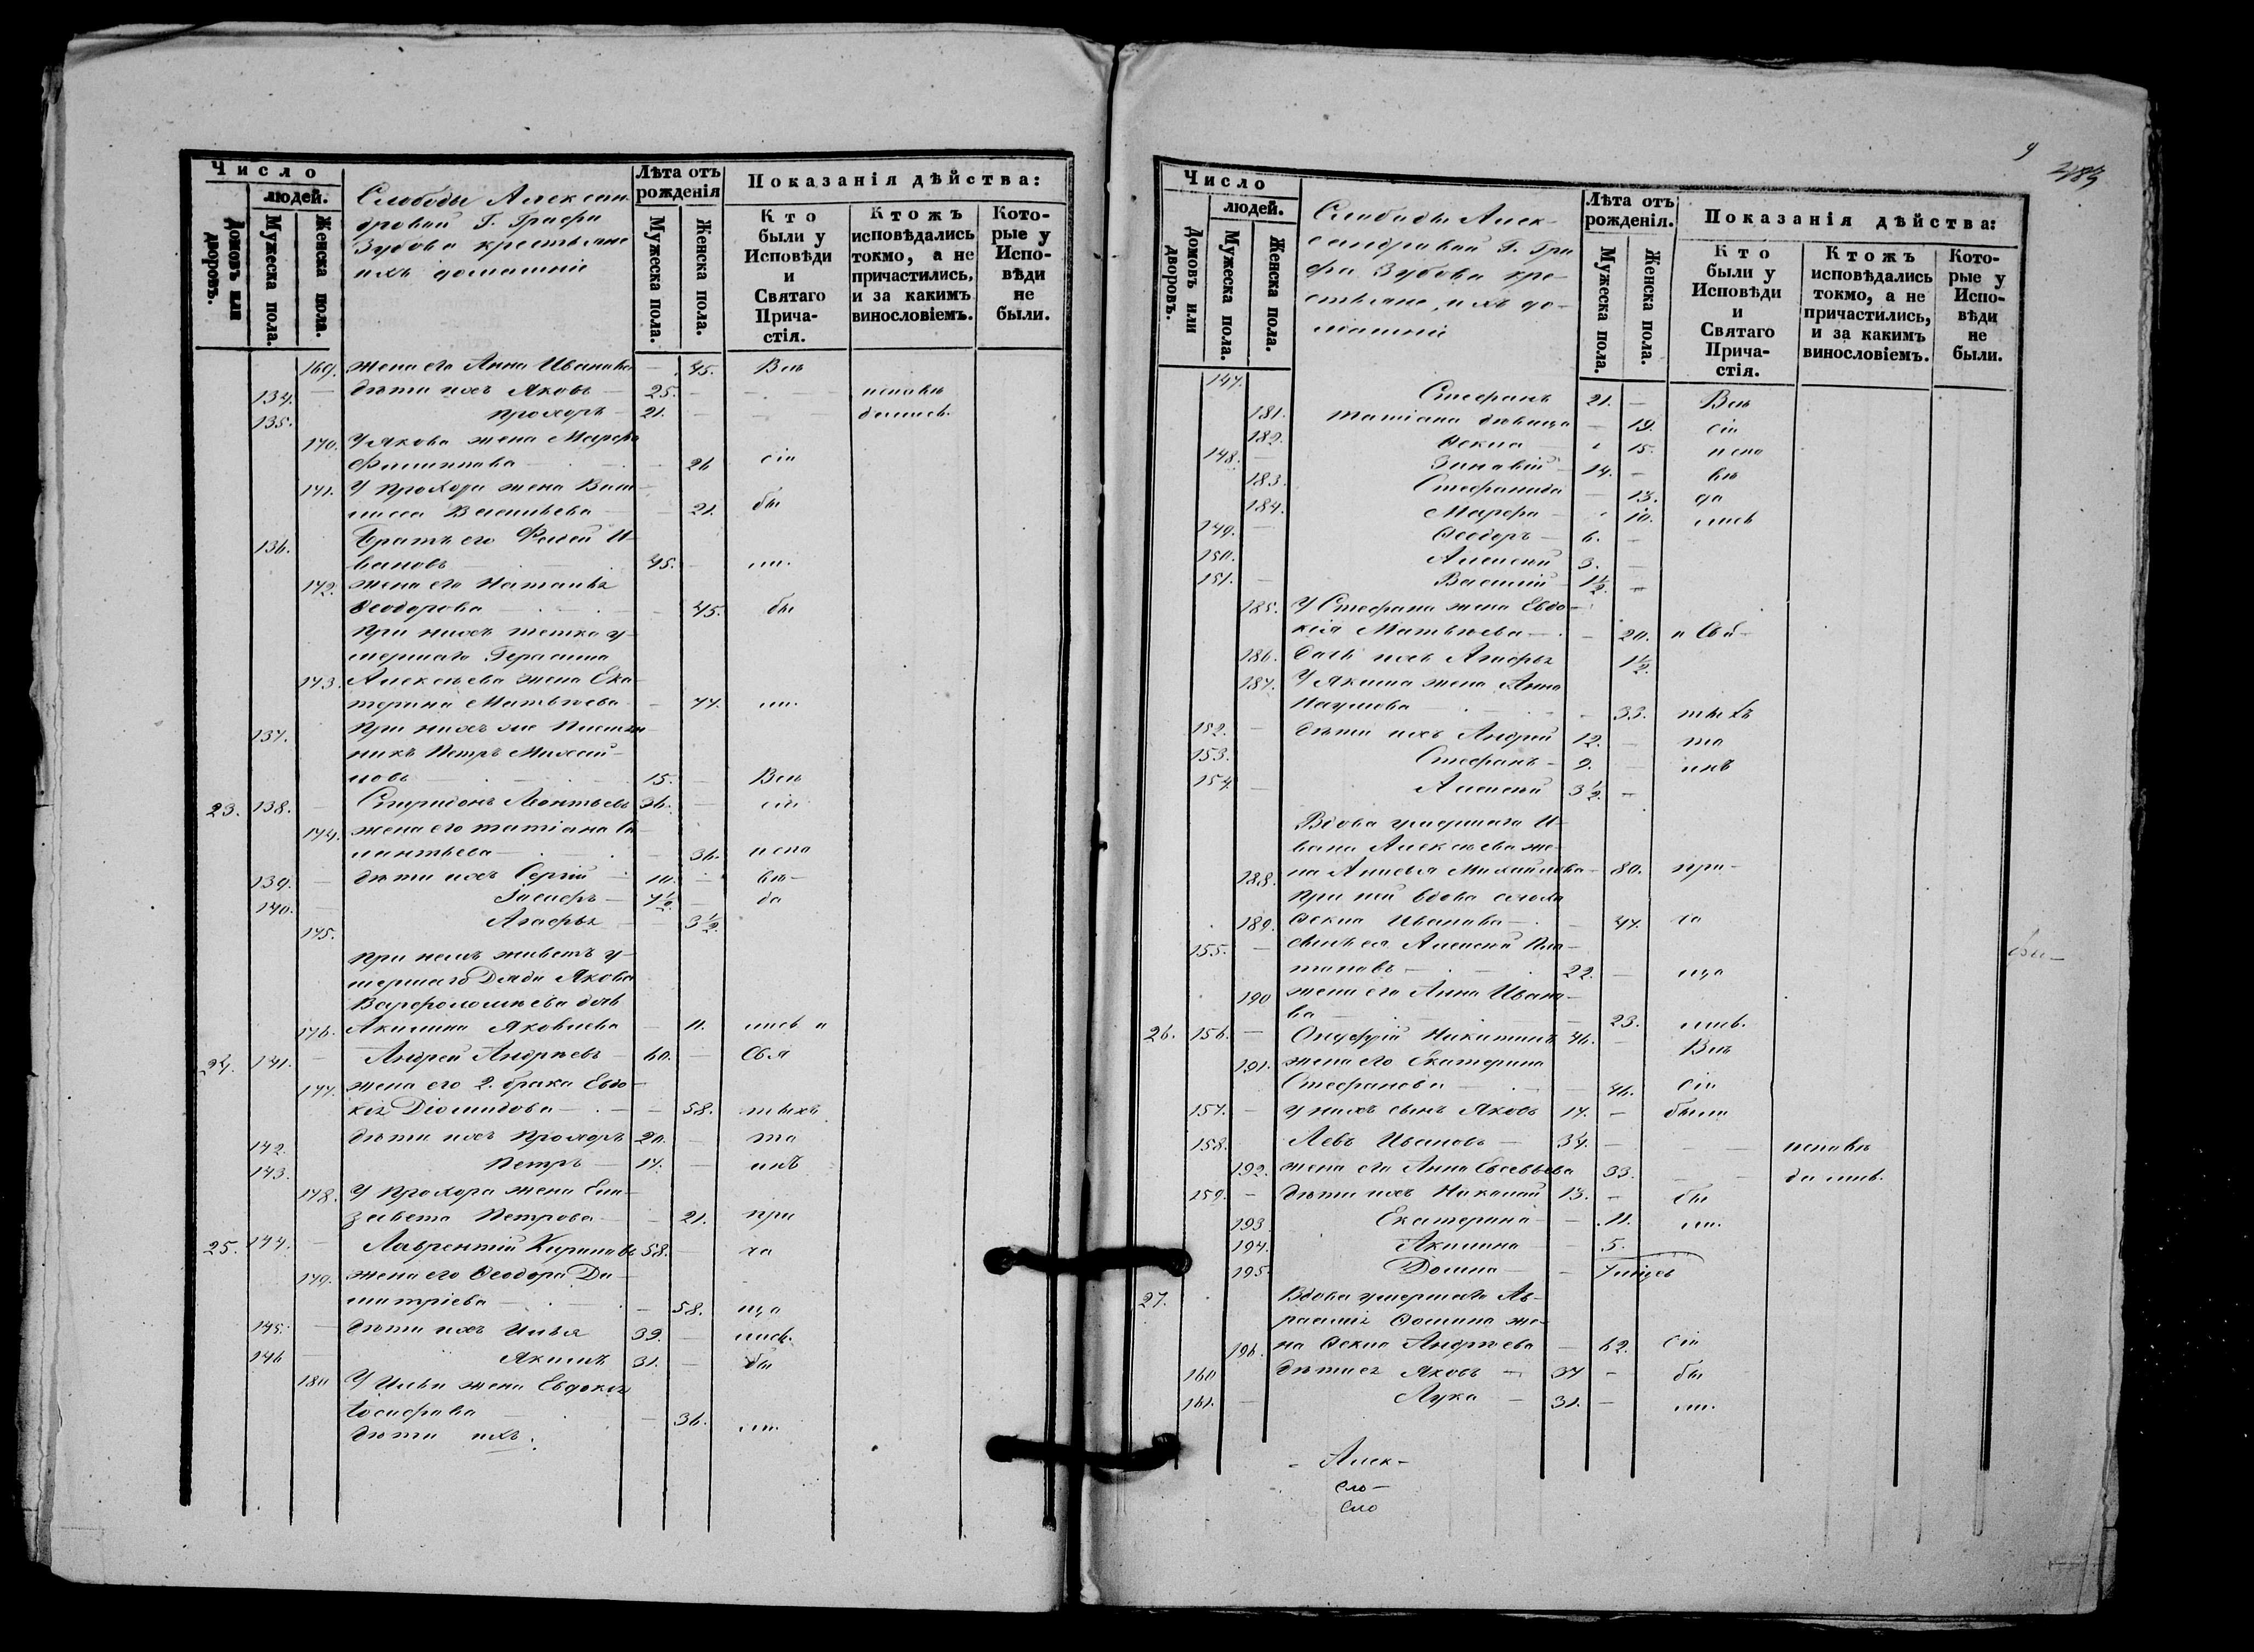 Число
людей.
Домовъ или дворовъ.
Мужеска пола.
Женска пола.
Слободы Алексан-
дровки Г. Графа
Зубова крестьяне
ихъ домашніе
Лѣта отъ рожденія
Мужеска пола.
Женска пола.
Показанія дѣйства:
Кто были у Исповѣди и Святаго Причастія.
Ктожъ исповѣдались токмо, а не причастились, и за какимъ винословіемъ.
Которые у Исповѣди не были.
169. жена его Анна Иванова — 45. Всѣ
134. — дѣти ихъ Яковъ — 25. — исповѣ
135. Прохоръ — 21. — дались
170. У Якова жена Марфа
Филиппова — 26 сіи
171. У Прохора жена Васи-
лисса Васильева — 21. бы
136. Братъ его И-
вановъ — 45. — ли.
172. жена его Наталья
Ѳеодорова — 45. бы
При нихъ тетка у-
мершаго Герасима
173. Алексѣева жена Ека-
терина Матвѣева — 77. ли.
137. При нихъ же
Петръ Михай-
ловъ — 15. — Всѣ
23. 138. — Спиридонъ Леонтьевъ 36. — сіи
174. жена его татіана
— 36. испо
139. — дѣти ихъ Сергій — 10. — вѣ-
140. — Іосифъ — 7½ — да
175. Агафья — 3½
при немъ живетъ у-
мершаго Дяди Якова
Варфоломѣева дочь
176. Акилина Яковлева — 11. лись и
24. 141. — Андрей Андрѣевъ — 60. — Свя
177. жена его 2. брака Евдо-
кія Діомидова — 58. тыхъ
142. дѣти ихъ Прохоръ 20. — та
143. Петръ — 17. — инъ
178. У Прохора жена Ели-
завета Петрова — 21. при
25. 144. — Лаврентій 58. — ча
179. жена его Ѳеодора Ди-
митріева — 58. ща
145. — дѣти ихъ Илья 39. — лись.
146 Якимъ 31. — бы
180 У Ильи жена Евдокія
Іосифова — 36. ли.
дѣти ихъ:
9
Число
людей.
Домовъ или дворовъ.
Мужеска пола.
Женска пола.
Слободы Алек-
сандровки Г. Гра
фа Зубова кре-
стьяне, ихъ до-
машніе
Лѣта отъ рожденія.
Мужеска пола.
Женска пола.
Показанія дѣйства:
Кто были у Исповѣди и Святаго Причастія.
Ктожъ исповѣдались токмо, а не причастились, и за какимъ винословіемъ.
Которые у Исповѣди не были.
147. Стефанъ 21. — Всѣ
181. татіана дѣвица — 19. сіи
182. Ѳекла — 15. испо
148. — Зиновій 14. — вѣ
183. Стефанида — 13. да
184. Марфа — 10. лись
149. — Ѳеодоръ — 6. —
150. Алексѣй 3. —
151. — Василій 1½ —
185. У Стефана жена Евдо-
кія Матвѣева — 20. и Свя-
186. дочь ихъ Агафья 1½
187. У Якима жена Анна
Наумова — 33. тыхъ
152. — дѣти ихъ Андрей 12. — та
153. Стефанъ — 9. — инъ
154. — Алексѣй 3½ —
Вдова умершаго И-
вана Алексѣева же-
188. на Михайлова — 80. при-
При ней вдова сноха
189. Ѳекла Иванова — 47. ча
155. — сынъ ея Алексѣй
22. — ща
190 жена его Анна Ивано-
ва — 23. лись.
26. 156. — Онуфрій Никитинъ 46. — Всѣ
191. жена его Екатерина
Стефанова — 46. сіи
157. — у нихъ сынъ Яковъ 17. — были
158. Левъ Ивановъ — 34. — исповѣ
192. жена его Анна Евсевьева 33. — дались.
159. — дѣти ихъ Николай 13. — бы
193 Екатерина — 11. ли.
194. Акилина — 5.
195. Домна — 7 мцевъ
27. Вдова умершаго Ав-
раамія Ѳомина же-
196. на Ѳекла Андрѣева — 62. сіи
160 дѣти ея Яковъ — 34 — бы
161. — Лука — 31. — ли.
- Алек-
сло-
сло